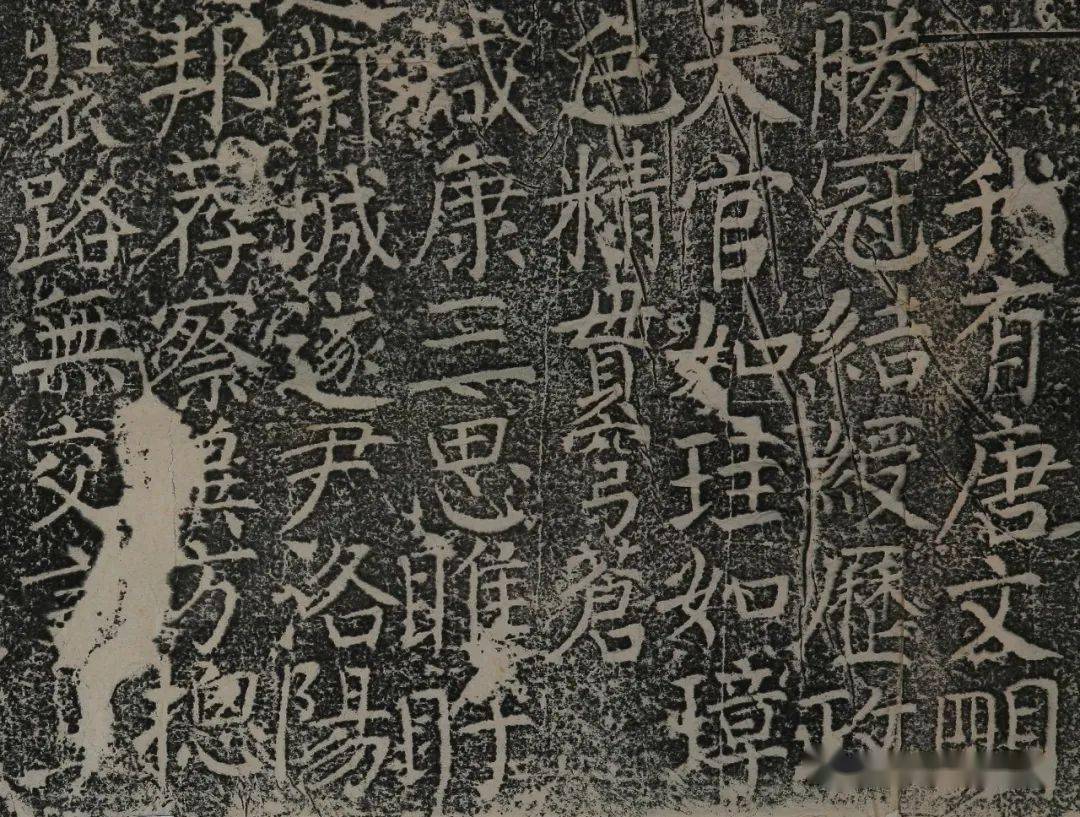 我有唐文明
勝冠結綬歷政
夫官如珪如璋
精貫穹蒼
康三思睢盱
鄴城遂尹洛陽
邦荐察方揔
裝路無交